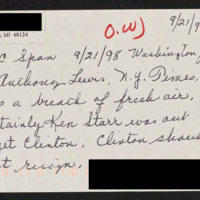 , MI 48124
O.W)
9/21/9
C Span 9/21/98 Washington
Anthony Lewis, N.Y. Times,
s a breath of fresh air.
tainly Ken Starr was out
get Clinton. Clinton shoul
t resign.